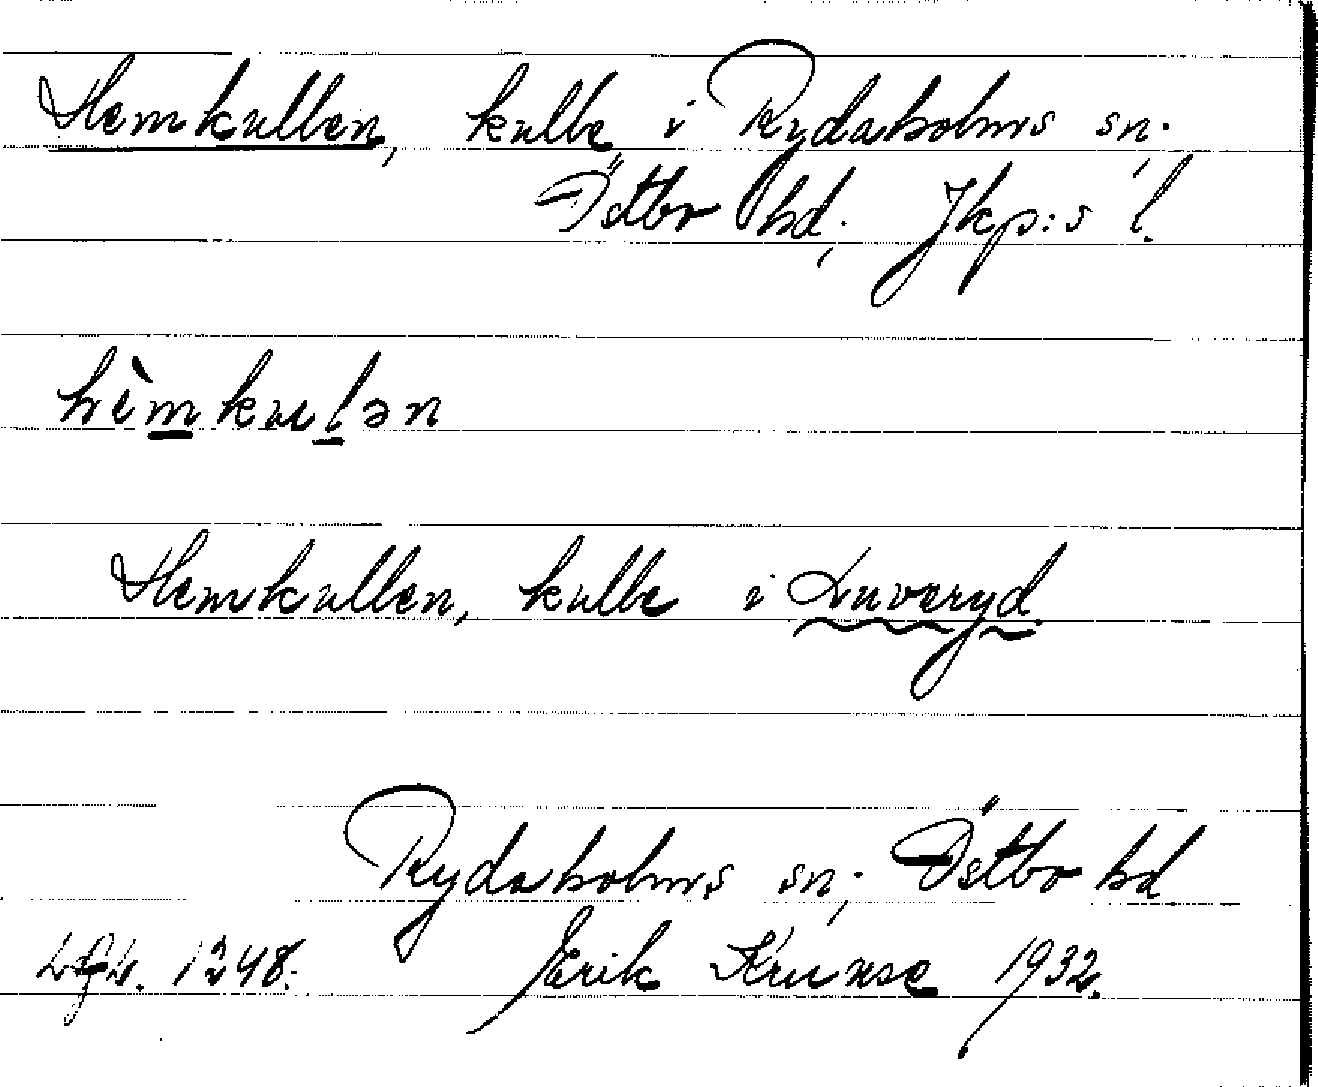 Hemkullen, kulle i Rydaholms sn;
Östbo hd; Jkp:s l.
hèmkulən
Hemkullen, kulle i Luveryd
Rydaholms sn; Östbo hd
1248. Erik Krunse 1932.